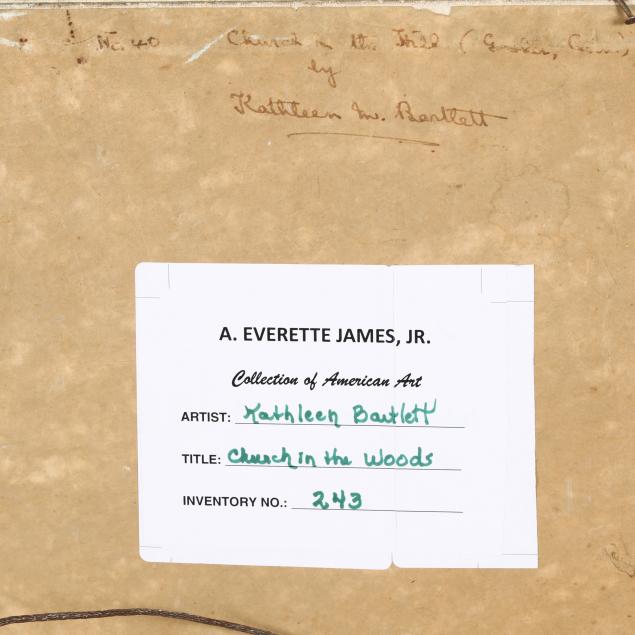 No. 40 Church in the Hills ( Conn.)
by
Kathleen M. Bartlett
A. EVERETTE JAMES, JR.
Collection of American Art
ARTIST: Kathleen Bartlett
TITLE: Church in the Woods
INVENTORY NO.: 243